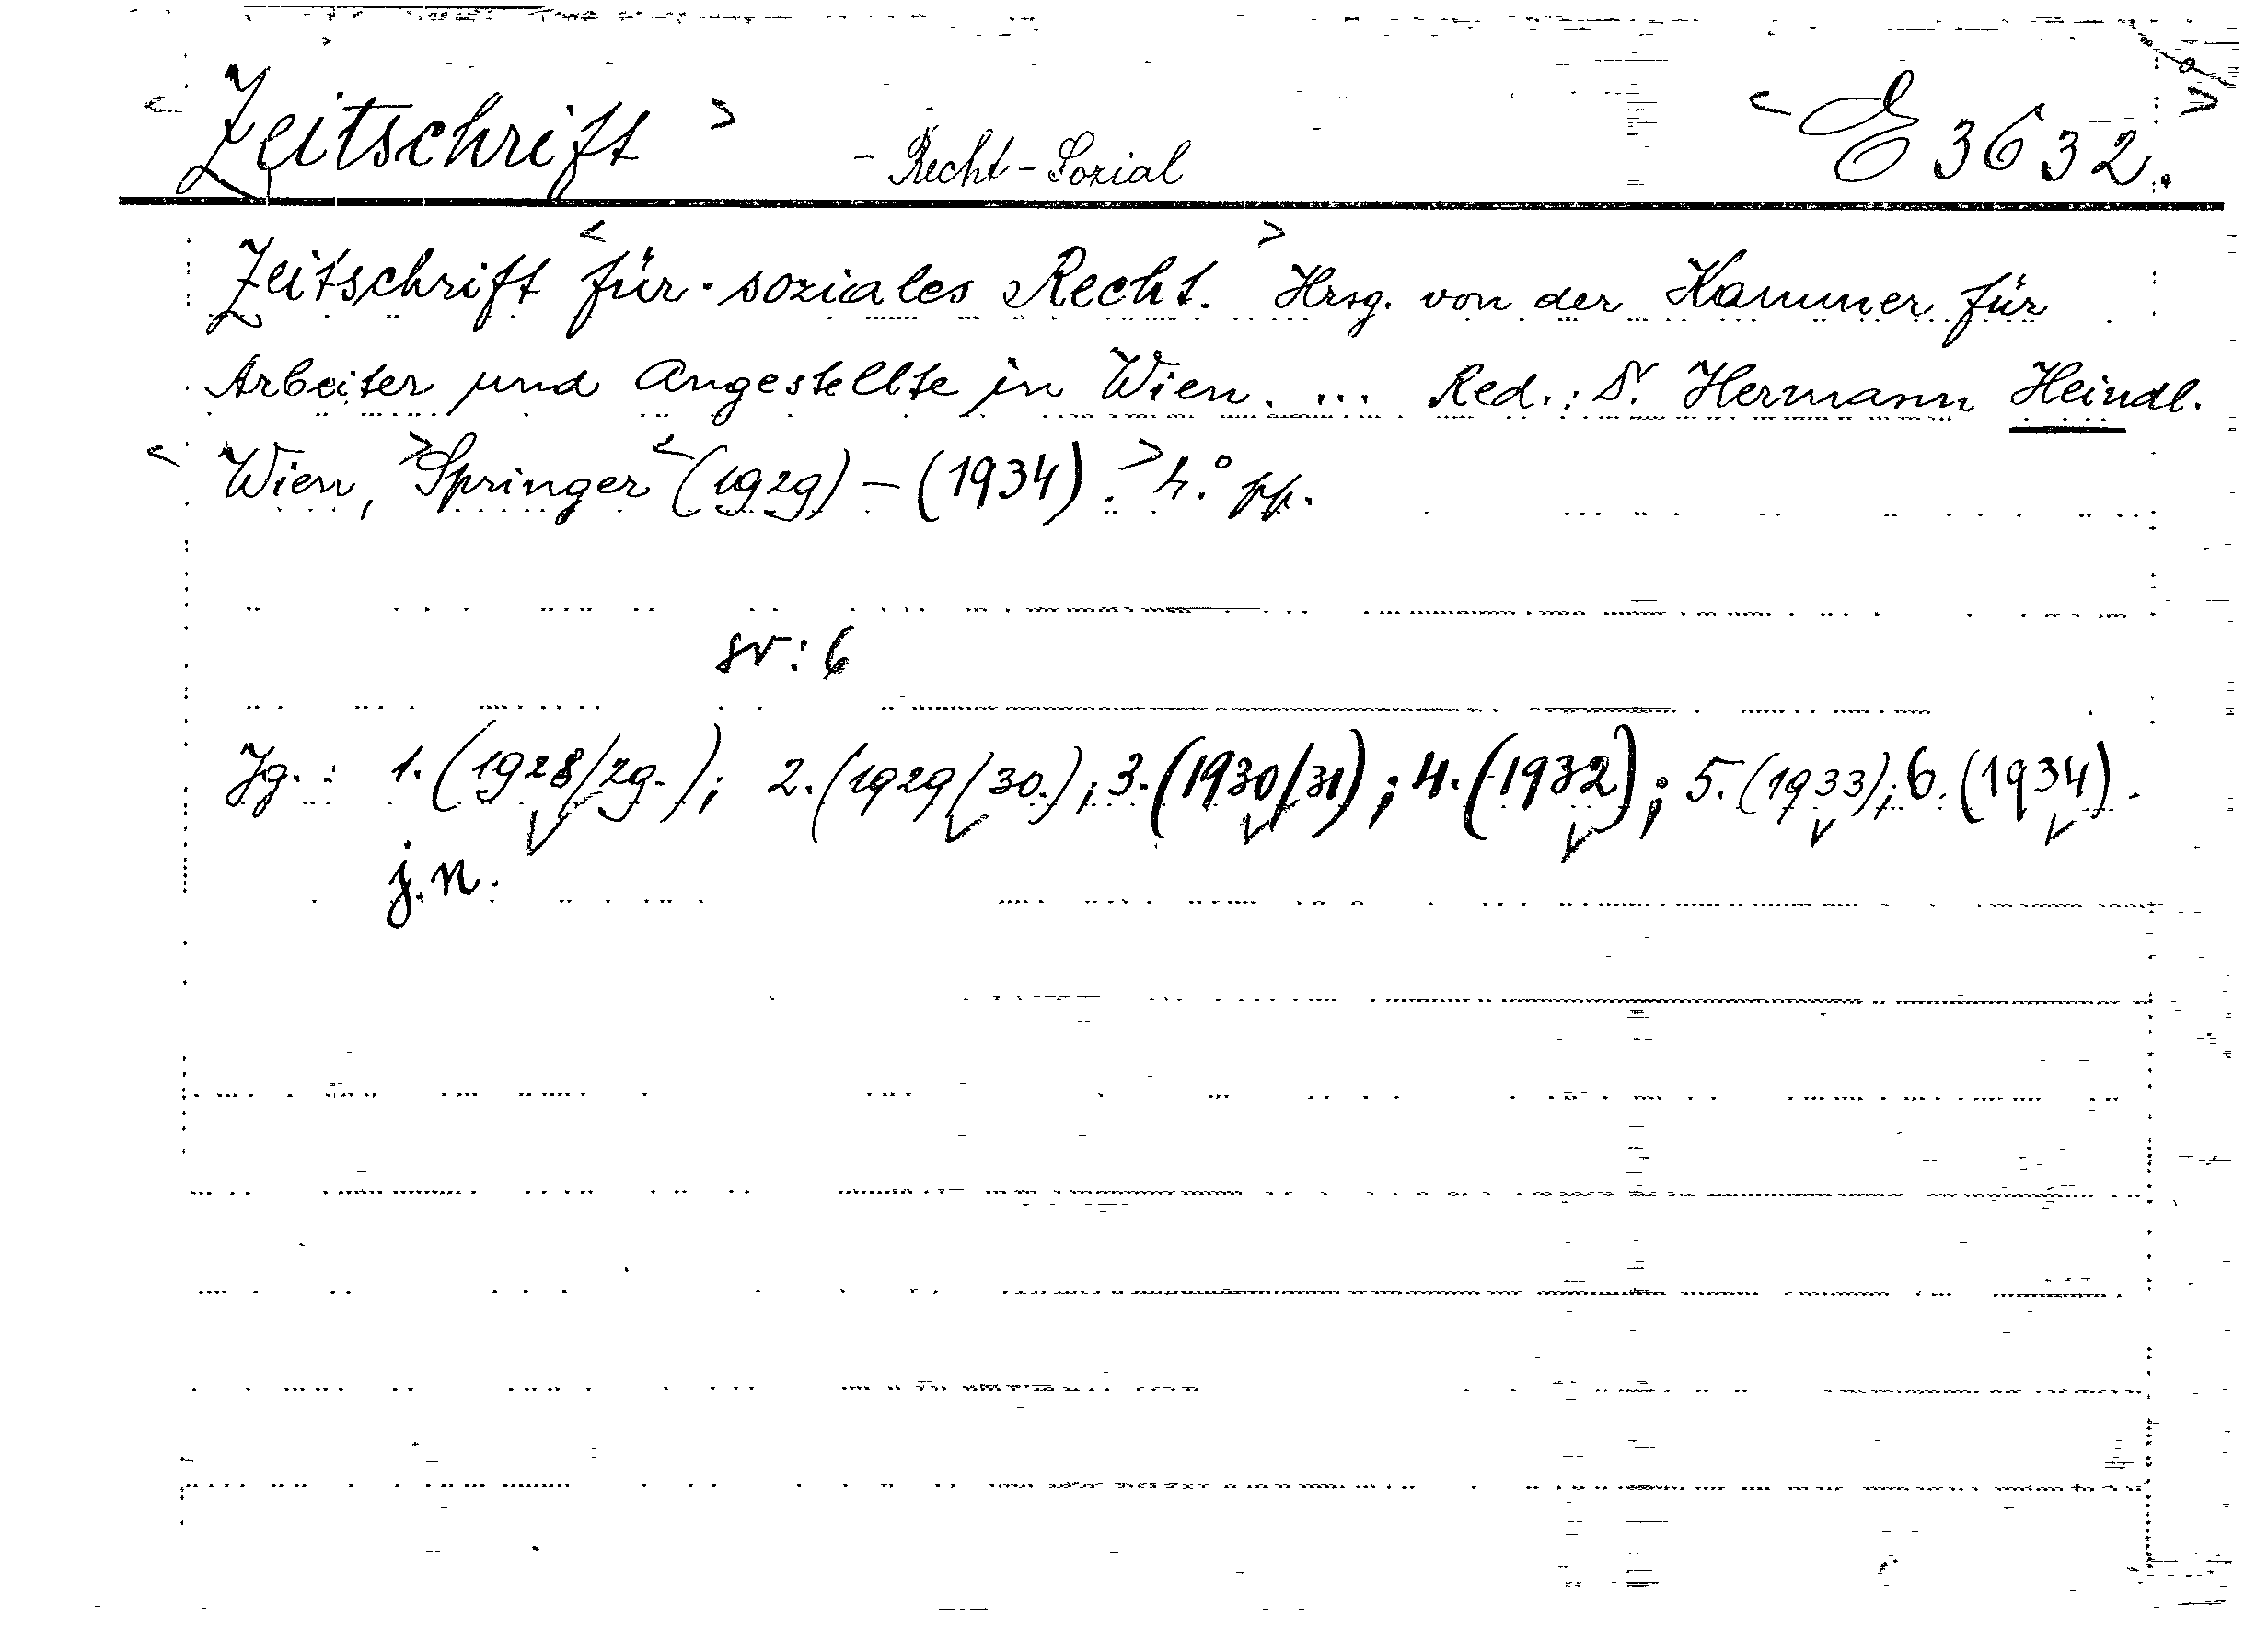 < Zeitschrift > - Recht - Sozial < E 3632. >
Zeitschrift < für soziales Recht. > Hrsg. von der Kammer für
Arbeiter und Angestellte in Wien. ... Red.: Dr. Hermann Heindl.
< Wien, > Springer < (1929) – (1934). > 4.° pp.
sv: 6
Jg.: 1. (1928/29.); 2. (1929/30.); 3. (1930/31); 4. (1932); 5. (1933); 6. (1934).
j. n.